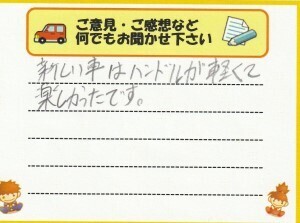 ご意見・ご感想など
何でもお聞かせ下さい
新しい車はハンドルが軽くて
楽しかったです。